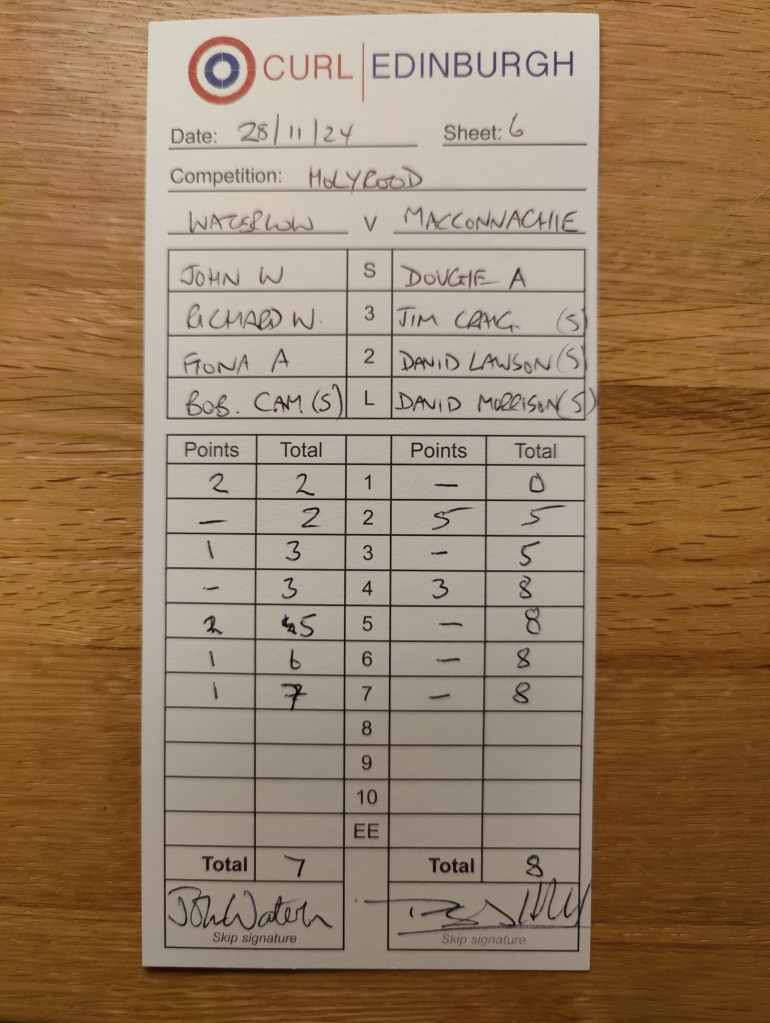 CURL | EDINBURGH
Date: 28/11/24 Sheet: 6
Competition: HOLYROOD
WATERLOW V MACCONNACHIE
JOHN W S DOUGIE A
RICHARD W. 3 JIM CRAIG (S)
FIONA A 2 DAVID LAWSON (S)
BOB. CAM (S) L DAVID MORRISON (S)
Points Total Points Total
2 2 1 — 0
— 2 2 5 5
1 3 3 - 5
- 3 4 3 8
2 5 5 — 8
1 6 6 — 8
1 7 7 - 8
8
9
10
EE
Total 7 Total 8
John
Skip signature Skip signature